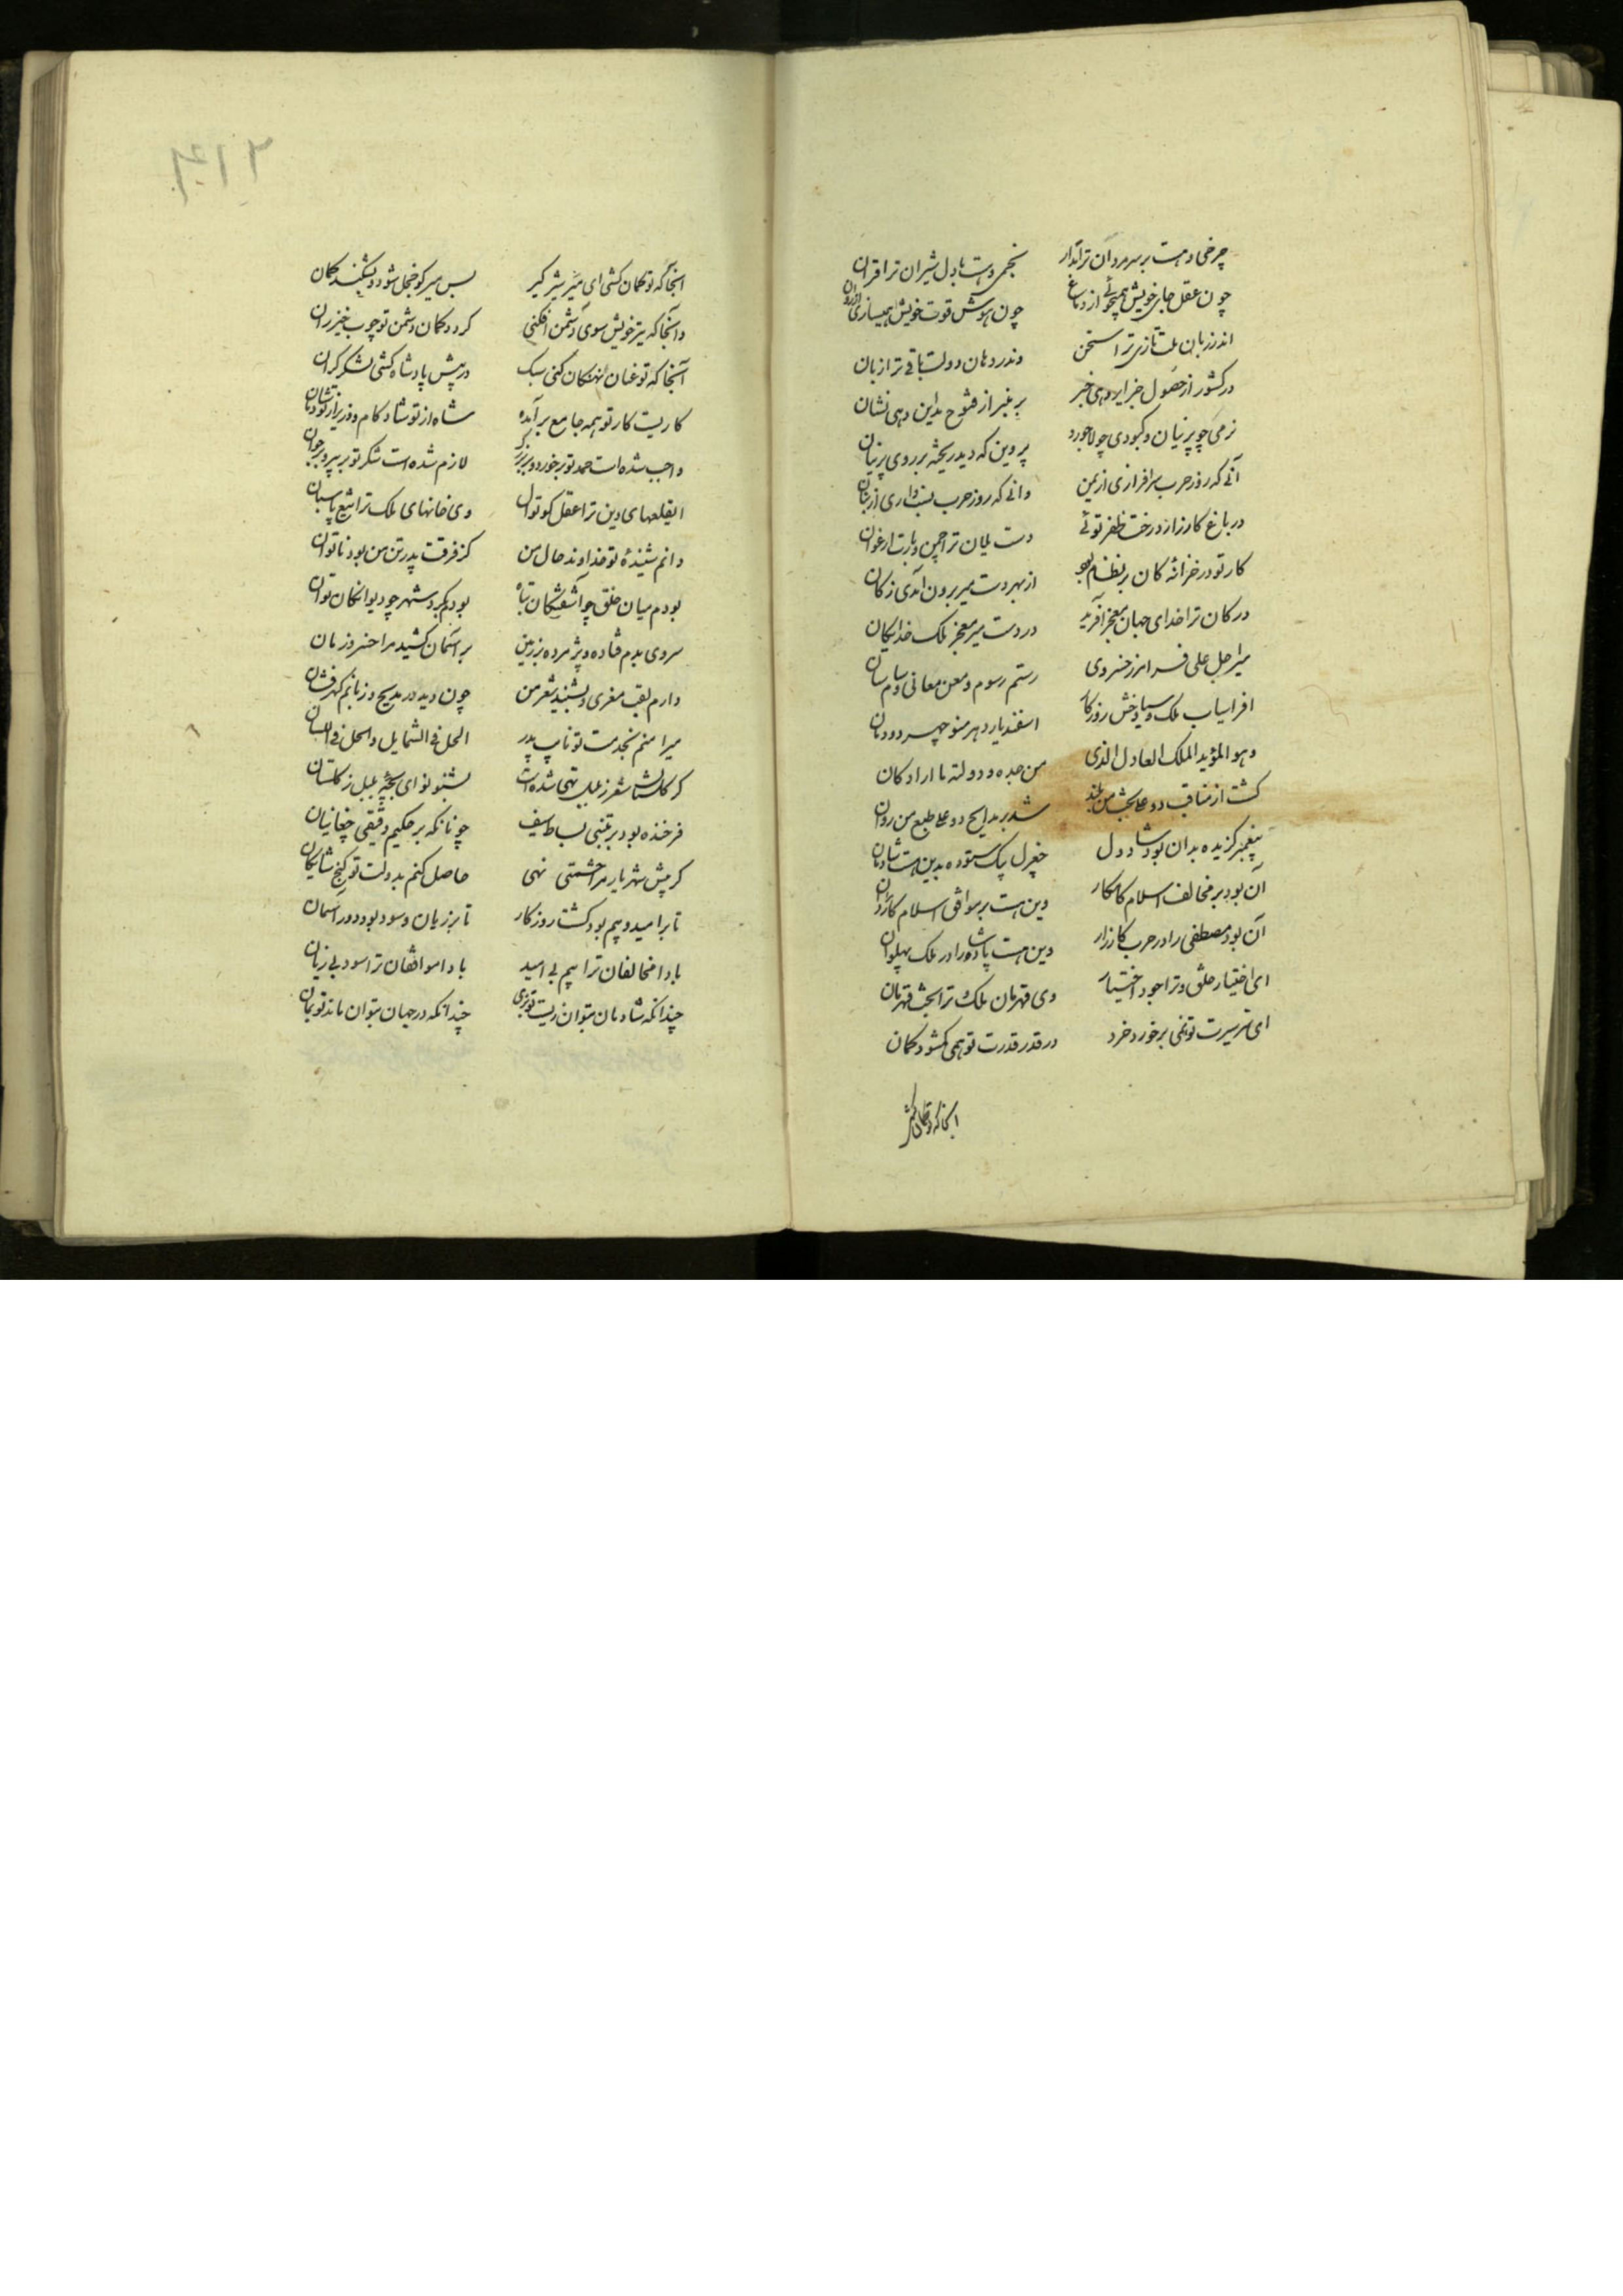 چرخی و هست بر سر مردان ترا مدار نجمی و هست با دل شیران ترا قران
چون عقل جای خویش همیجوئی از دماغ چون هوش قوت خویش همیسازی از روان
اندر زبان ملت تازی ترا سخن وندر دهان دولت باقی ترا زبان
در کشور از حصول خبر دهی خبر بر منبر از فتوح مداین دهی نشان
نرمی چو پرنیان و کبودی چو لاجورد پروین که دید ریخته بر روی پرنیان
آنی که روز حرب سرافرازی از یمین وانی که روز حرب از بنان
در باغ کارزار درخت ظفر توئی دست یلان ترا چمن و بارت ارغوان
کار تو در خزانه کان بی نظام بود از بهر دست میر برون آمدی ز کان
در کان ترا خدای جهان معجز آفرید در دست میر معجز ملک خدایگان
میر اجل علی فرامرز خسروی رستم رسوم و معن معانی و سام سان
افراسیاب ملک و سیاوخش روزگار اسفندیار دهر منوچهر دودمان
وهو المؤید الملک العادل الذی من جده و دولته ما اراد کان
گشت از مناقب دو علی بخت من بلند شد بر مدایح دو علی طبع من روان
پیغمبر گزیده بدان بود شاد دل جغرل بک ستوده بدین هست شادمان
آن بود بر مخالف اسلام کامکار وین هست بر موافق اسلام کاردان
آن بود مصطفی را در حرب کارزار وین هست پادشاه را در ملک پهلوان
ای اختیار خلق و ترا جود اختیار وی قهرمان ملک و ترا بخت قهرمان
ای سیرت تو نمی برخورد خرد در قدر قدرت تو همی گشود گمان
آنجا که تو کمان کشی
۴۱۲
آنجا که تو کمان کشی ای میر شیر گیر بس میر کو خجل شود و بشکند کمان
وانجا که تیر خویش سوی دشمن افکنی گردد کمان دشمن تو چوب خیزران
آنجا که تو عنان نهنگان کنی سبک در پیش پادشاه کشی لشکر گران
کاریست کار تو همه جا مع برآمده شاه از تو شادکام و وزیر از تو شادمان
واجب شده است حمد تو بر خورد و بر بزرگ لازم شده است شکر تو بر پیر و بر جوان
ای قلعهای دین ترا عقل کوتوال وی خانهای ملک ترا تیغ پاسبان
دانم شنیدهٔ تو خداوند حال من کز فرقت پدر تن من بود ناتوان
بودم میان خلق چو آشفتگان تباه بودم بگرد شهر چو دیوانگان نوان
سروی بدم فتاده و پژمرده بر زمین بر آسمان کشید مرا خسرو زمان
دارم لقب معزی و بشنید شعر من چون دید در مدیح و زبانم گهرفشان
میرا منم بخدمت تو نایب پدر الحل فی الشمایل والحل فی اللسان
گر گلستان شعر ز بلبل تهی شده است بشنو نوای بچه بلبل ز گلستان
فرخنده بود بر متنبی بساط سیف چونانکه بر حکیم دقیقی چغانیان
گر پیش شهریار مرا حشمتی نهی حاصل کنم بدولت تو گنج شایگان
تا بر امید و بیم بود گشت روزگار تا بر زیان و سود بود دور آسمان
بادا مخالفان ترا بیم بی امید بادا موافقان ترا سود بی زیان
چندانکه شادمان بتوان زیست تو بزی چندانکه در جهان بتوان ماند تو بمان